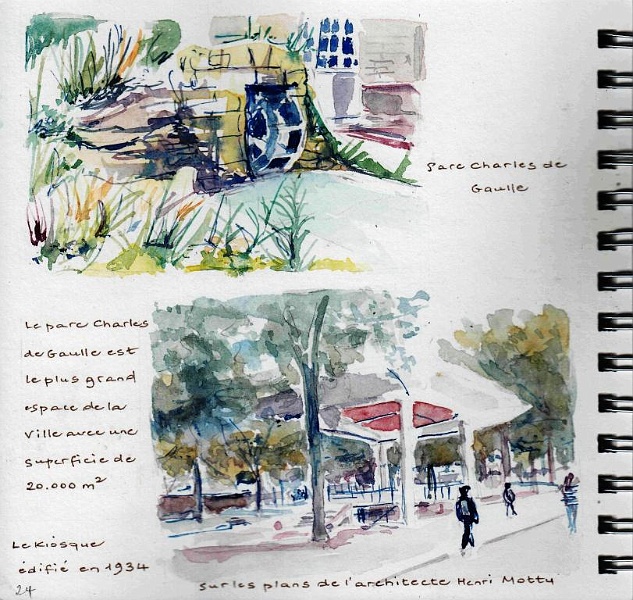 Parc Charles de
Gaulle
Le parc Charles
de Gaulle est
le plus grand
espace de la
Ville avec une
superficie de
20.000 m²
Le Kiosque
édifié en 1934
sur les plans de l'architecte Henri Motty
24